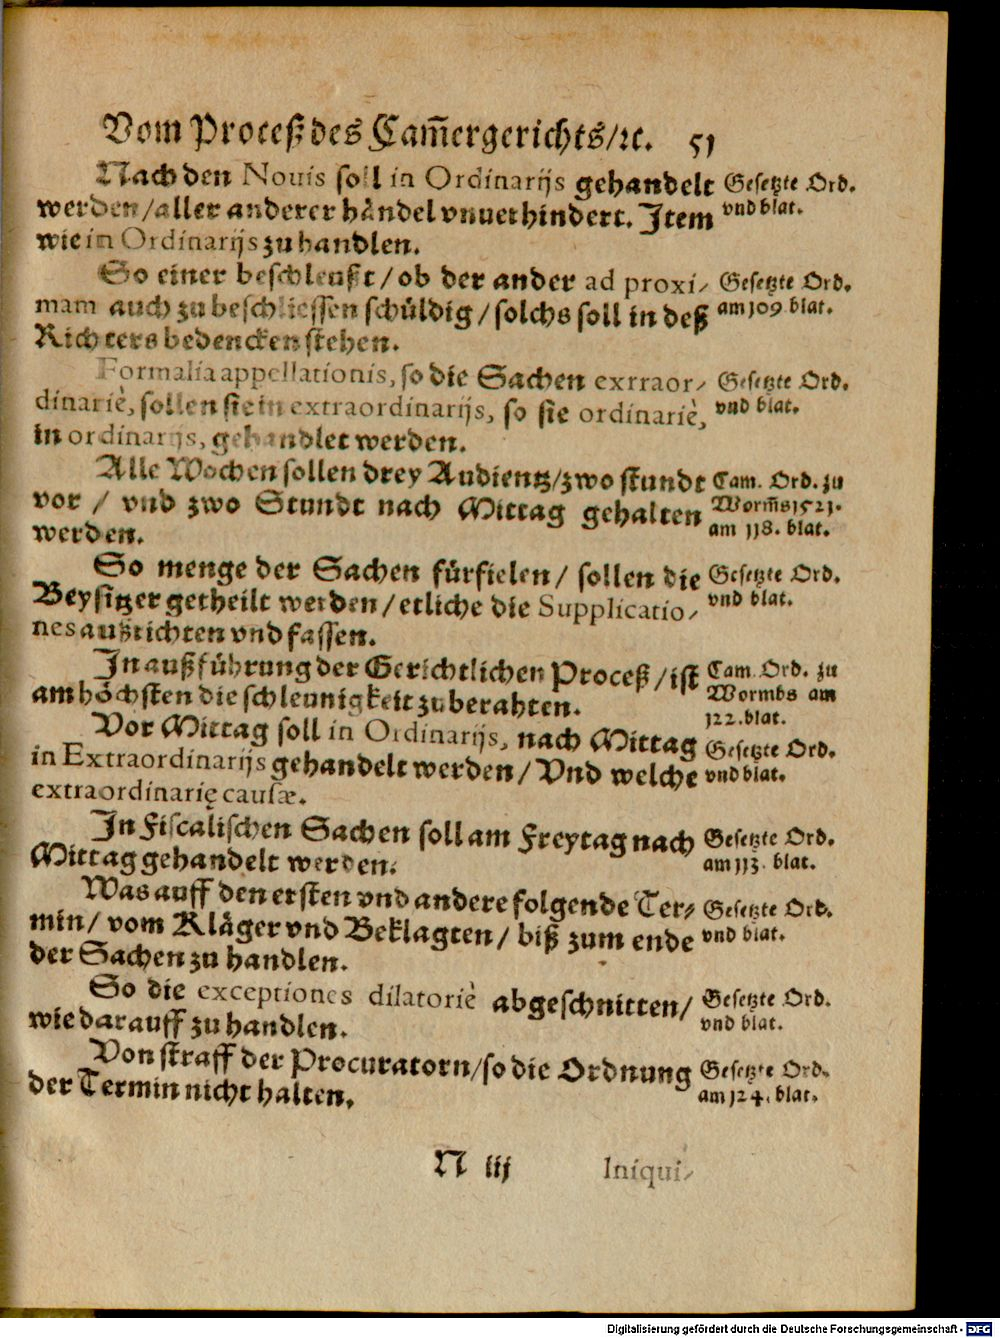 Vom Proceß des Cam̃ergerichts/ꝛc. 51
Nach den Nouis soll in Ordinarijs gehandelt
werden/aller anderer håndel vnuerhindert. Item
wie in Ordinarijs zu handlen.
Gesetzte Ord.
vnd blat.
So einer beschleußt/ob der ander ad proxi-
mam auch zu beschliessen schůldig/solchs soll in deß
Richters bedencken stehen.
Gesetzte Ord.
am 109 blat.
Formalia appellationis, so die Sachen exrraor-
dinariè, sollen sie in extraordinarijs, so sie ordinariè,
in ordinarijs, gehandlet werden.
Gesetzte Ord.
vnd blat.
Alle Wochen sollen drey Audientz/zwo stundt
vor / vnd zwo Stundt nach Mittag gehalten
werden.
Cam. Ord. zu
Worm̃s 1521.
am 118. blat.
So menge der Sachen fůrfielen/ sollen die
Beysitzer getheilt werden/etliche die Supplicatio-
nes außrichten vnd fassen.
Gesetzte Ord.
vnd blat.
In außfůhrung der Gerichtlichen Proceß/ist
am hôchsten die schleunigkeit zu berahten.
Cam. Ord. zu
Wormbs am
122. blat.
Vor Mittag soll in Ordinarijs, nach Mittag
in Extraordinarijs gehandelt werden/ Vnd welche
extraordinarię causæ.
Gesetzte Ord.
vnd blat.
In Fiscalischen Sachen soll am Freytag nach
Mittag gehandelt werden.
Gesetzte Ord.
am 113. blat.
Was auff den ersten vnd andere folgende Ter-
min/ vom Klåger vnd Beklagten/ biß zum ende
der Sachen zu handlen.
Gesetzte Ord.
vnd blat.
So die exceptiones dilatoriè abgeschnitten/
wie darauff zu handlen.
Gesetzte Ord.
vnd blat.
Von straff der Procuratorn/so die Ordnung
der Termin nicht halten.
Gesetzte Ord.
am 124. blat.
N iij Iniqui-
Digitalisierung gefördert durch die Deutsche Forschungsgemeinschaft - DFG